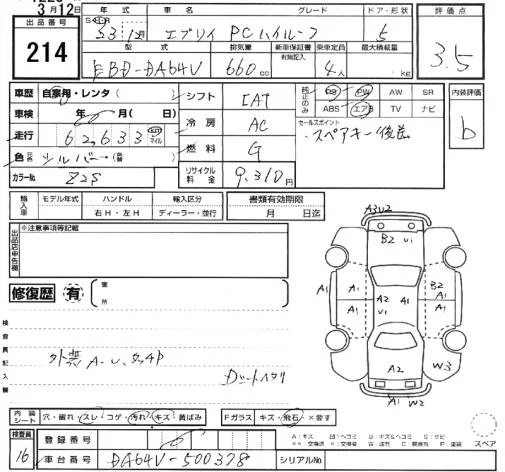 3月12日
出品番号 214
年式 車名 グレード ドア・形状
エブリイ PCハイルーフ 5
型式 排気量 新車保証書 乗車定員 最大積載量
EBD-DA64V 660cc 有無記入 4人 kg
評価点
3.5
車歴 自家用・レンタ( ) シフト IAT
車検 年 月( 日) 冷房 AC
走行 62,633 km マイル 燃料 G
色 元色 シルバー (替 ) リサイクル料金 9,310円
カラーNo. Z2S
純正のみ PS PW AW SR
ABS エアB TV ナビ
セールスポイント
スペアキー後送
内装評価
b
輸入車 モデル年式 ハンドル 輸入区分 書類有効期限
右H・左H ディーラー・並行 月 日迄
出品店申告欄 ※注意事項等記載
修復歴 有 箇所
検査員記入欄
外装 A-U
A3 U2
B2 U1
A1 A1 A2 A1 B2 A1
U1 A1
A1 A2 W3
A1 W2
内装シート 穴・破れ・スレ・コゲ・汚れ・キズ・黄ばみ Fガラス キズ・飛石・×要す
スペア
検査員 16
登録番号
車台番号 DA64V-500378 シリアルNo.